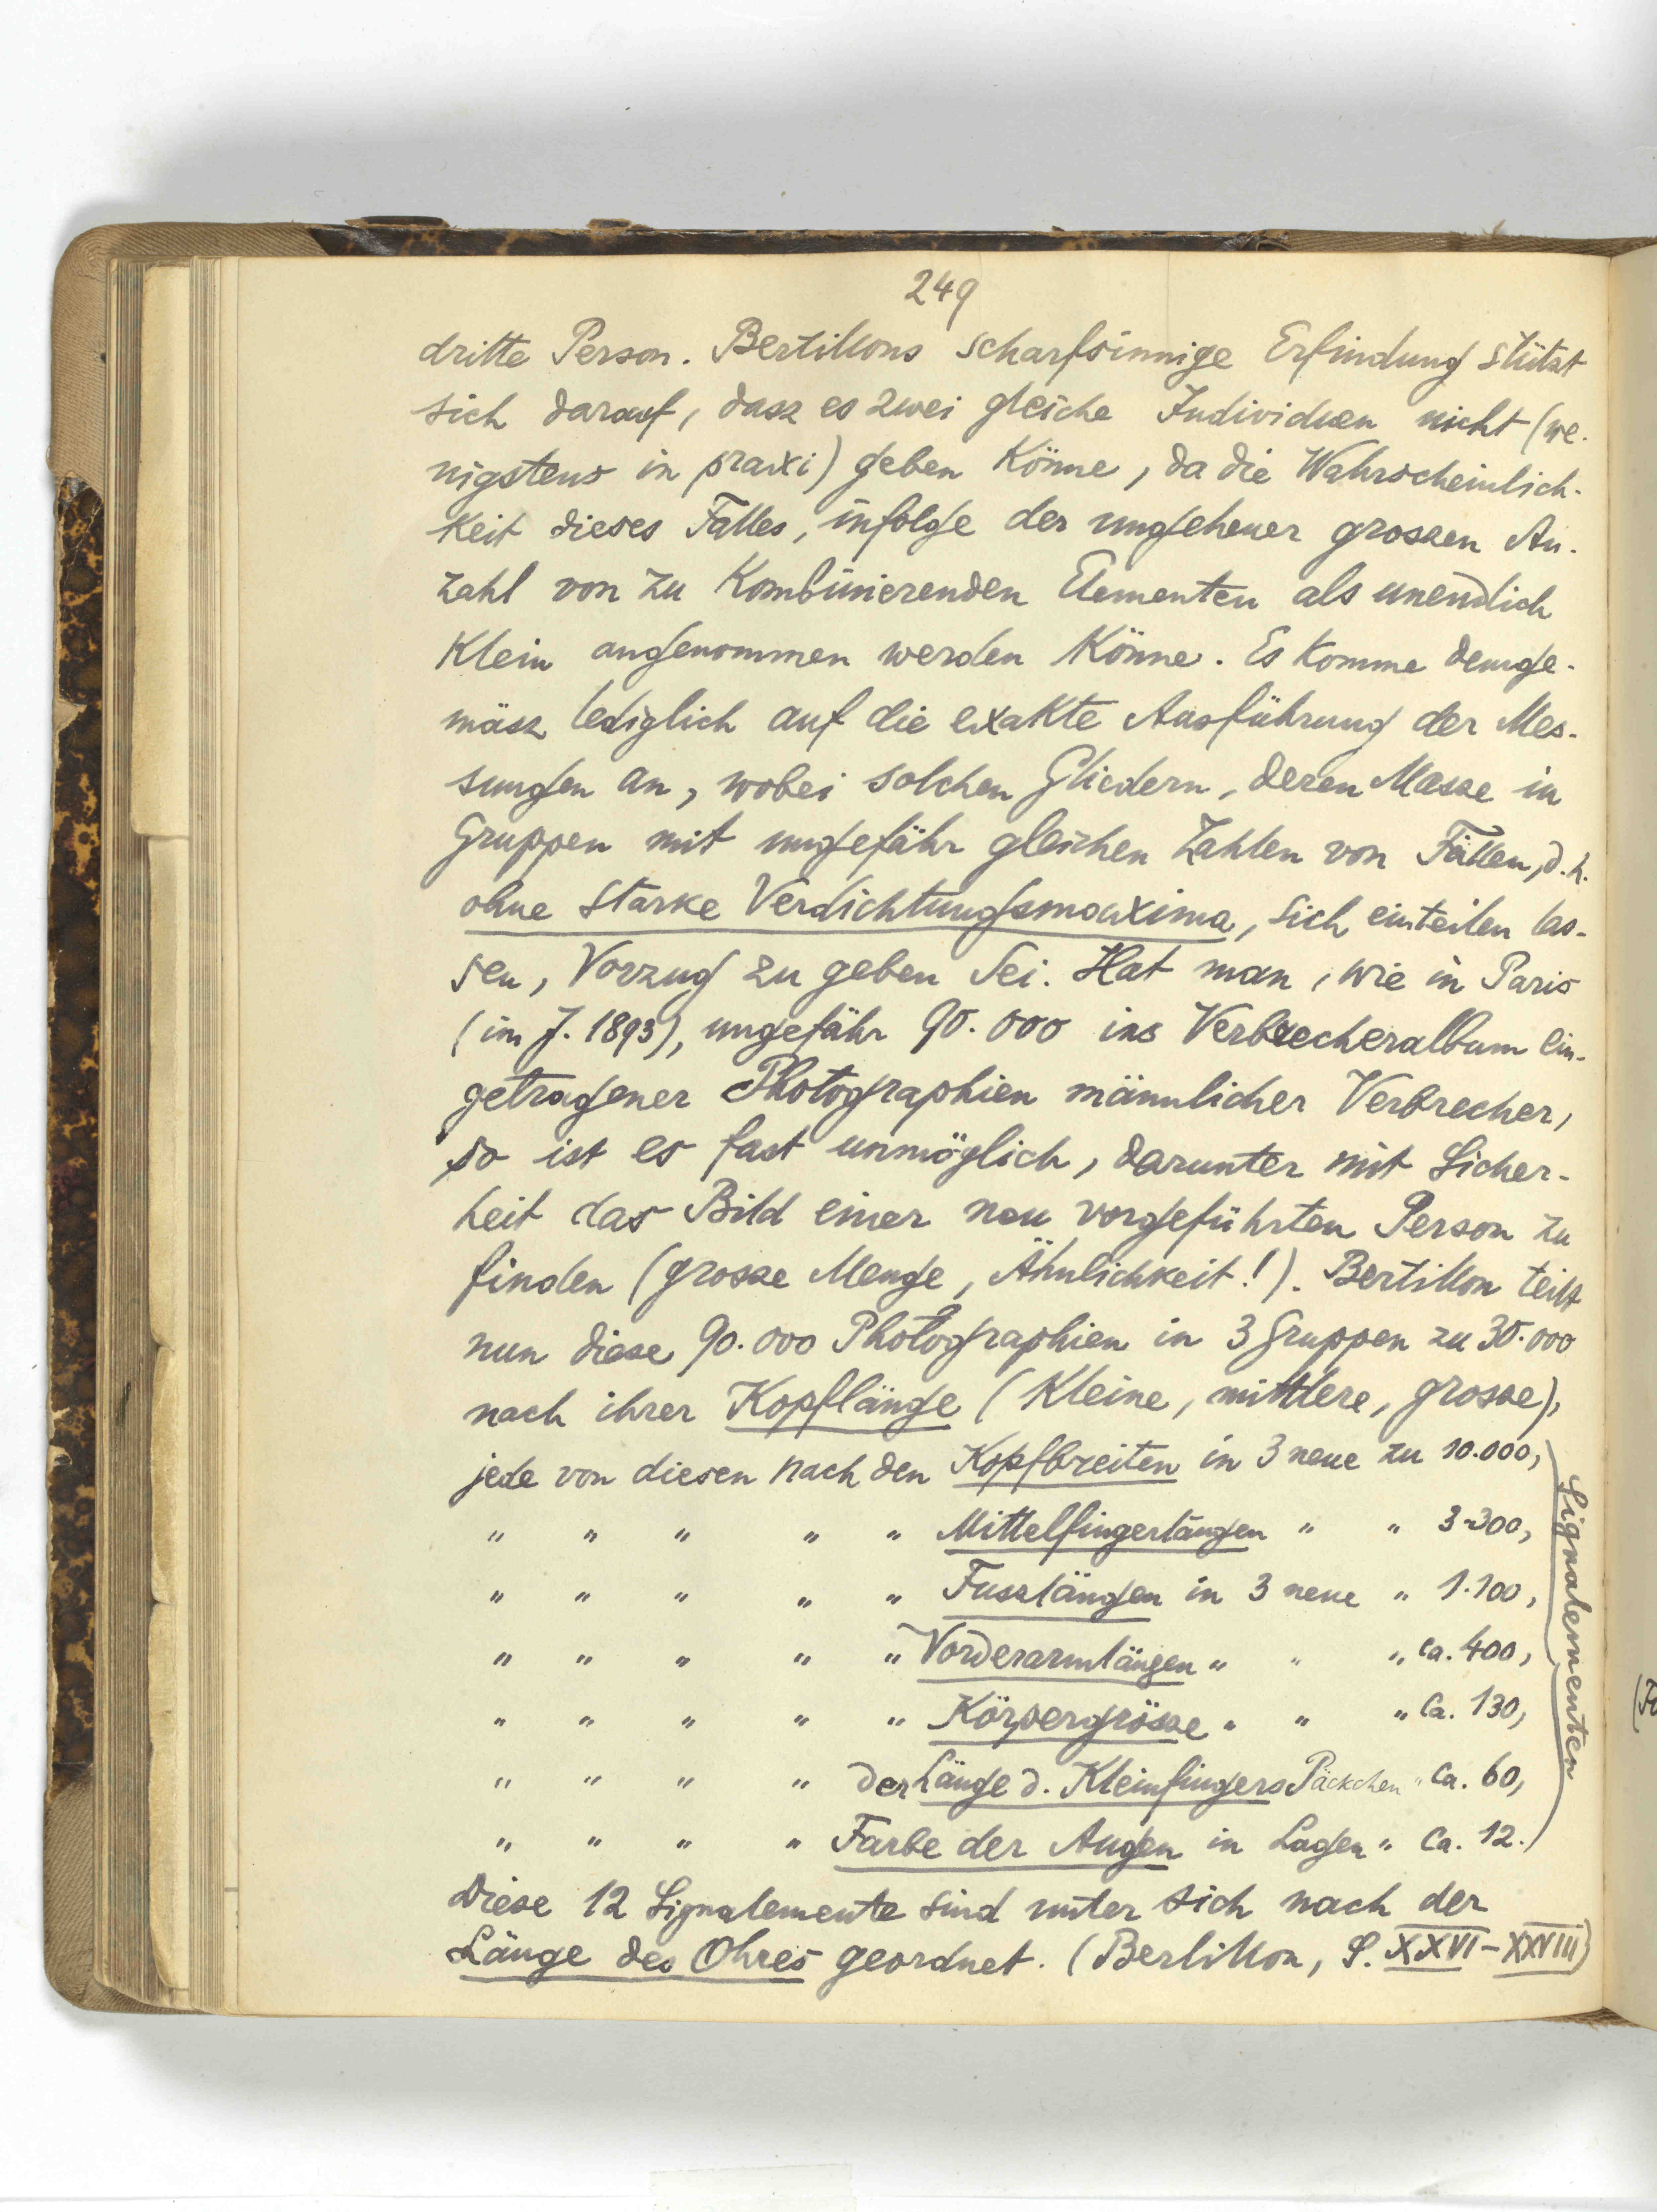 249
dritte Person. Bertillons scharfsinnige Erfindung stützt
sich darauf, dasz es zwei gleiche Individuen nicht (we-
nigstens in praxi) geben könne, da die Wahrscheinlich-
keit dieses Falles, infolge der ungeheuer grossen An-
zahl von zu kombinierenden Elementen als unendlich
klein angenommen werden könne. Es komme demge-
mäsz lediglich auf die exakte Ausführung der Mes-
sungen an, wobei solchen Gliedern, deren Masse in
Gruppen mit ungefähr gleichen Zahlen von Fällen, d.h.
ohne starke Verdichtungsmaxima, sich einteilen las-
sen, Vorzug zu geben sei. Hat man, wie in Paris
(im J. 1893), ungefähr 90.000 ins Verbrecheralbum ein-
getragener Photographien männlicher Verbrecher,
so ist es fast unmöglich, darunter mit Sicher-
heit das Bild einer neu vorgeführten Person zu
finden (grosse Menge, Ähnlichkeit!). Bertillon teilt
nun diese 90.000 Photographien in 3 Gruppen zu 30.000
nach ihrer Kopflänge (kleine, mittlere, grosse),
jede von diesen nach den Kopfbreiten in 3 neue zu 10.000,
" " " " " Mittelfingerlängen " " 3.300,
" " " " " Fusslängen in 3 neue " 1.100,
" " " " " Vorderarmlängen " " " ca. 400,
" " " " " Körpergrösse " " " ca. 130,
" " " " der Länge d. Kleinfingers Päckchen " ca. 60,
" " " " Farbe der Augen in Lagen " ca. 12.
Signalementen
Diese 12 Signalemente sind unter sich nach der
Länge des Ohres geordnet. (Bertillon, S. XXVI-XXVIII)